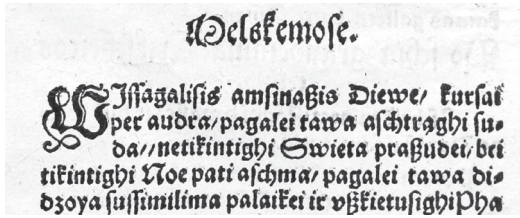 Melskemose.
WJssagalisis amsinaßis Diewe/ kursai
per audra/ pagalei tawa aschtrąghi su-
da/, netikintighi Swieta praßudei/ bei
tikintighi Noe pati aschma, pagalei tawa di-
dzoya sussimilima palaikei ir vßkietusighi Pha